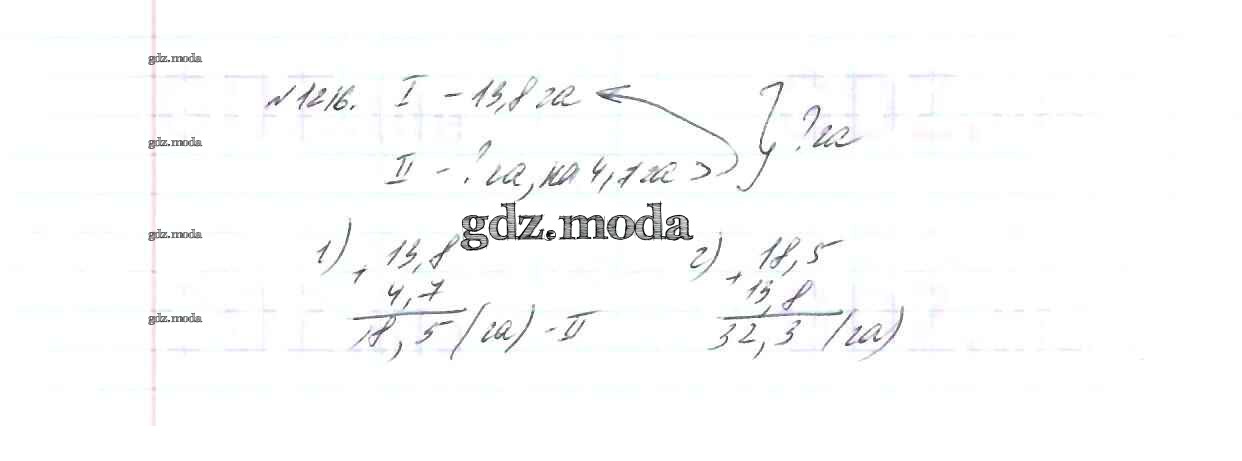 gdz.moda
№1216. I - 13,8 га
? га
gdz.moda
II - ? га, на 4,7 га >
gdz.moda
gdz.moda
1) + 13,8
4,7
18,5 (га) - II
2) + 18,5
13,8
32,3 (га)
gdz.moda